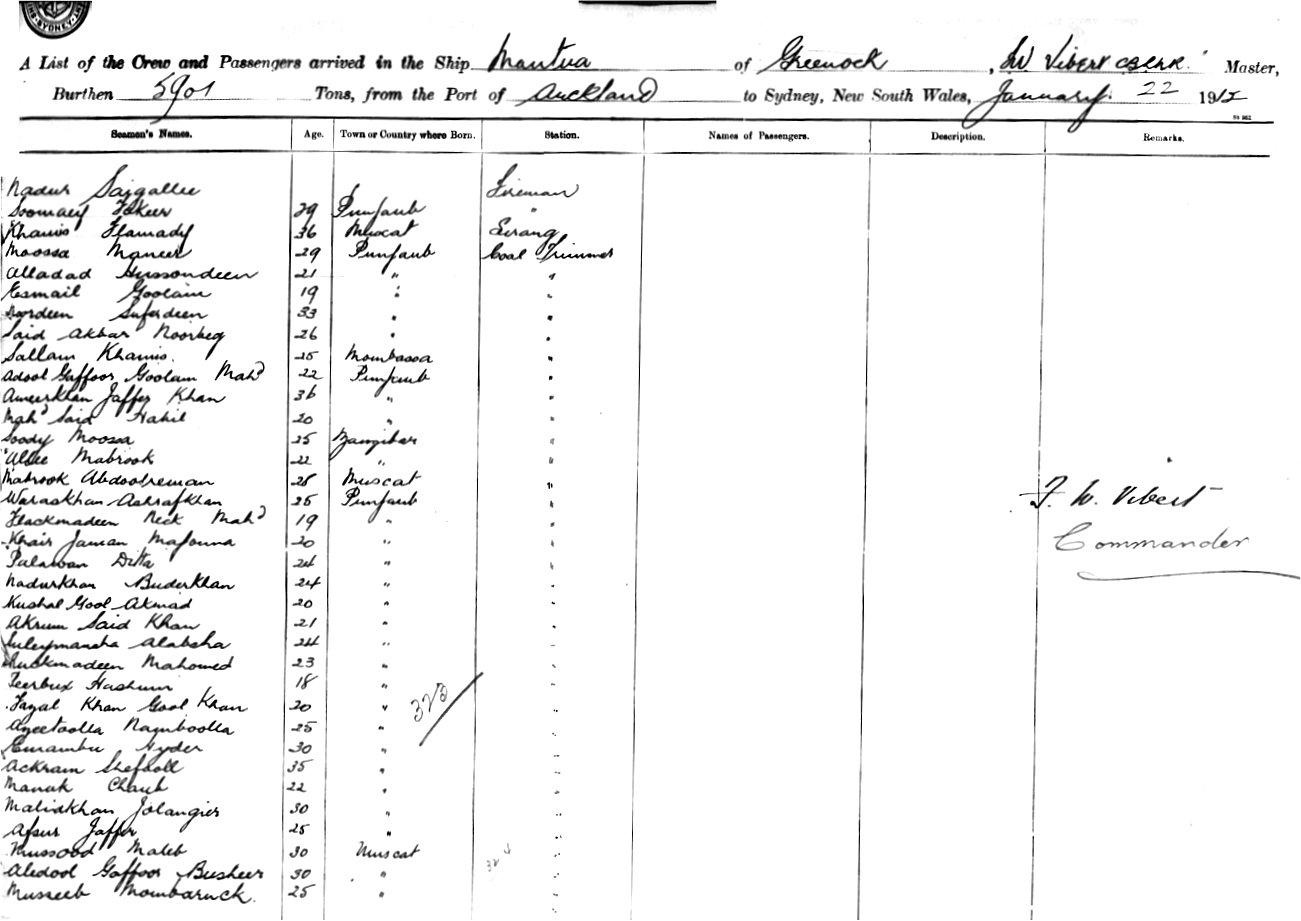 SYDNEY
A List of the Crew and Passengers arrived in the Ship Mantua of Greenock, W Vibert Master,
Burthen 5901 Tons, from the Port of Auckland to Sydney, New South Wales, January 22 1912
Seamen's Names. Age. Town or Country where Born. Station. Names of Passengers. Description. Remarks.
Nadur Saigallee Fireman
Soomaly Fakeer 29 Punjaub "
Khamis Hamady 36 Muscat Serang
Moossa Maneer 29 Punjaub Coal Trimmer
Alladad Hussondeen 21 " "
Esmail Goolam 19 " "
Noordeen Suferdeen 33 " "
Said Akbar Noorbeg 26 " "
Sallam Khamis. 25 Mombassa "
Adool Gaffoor Goolam Mahd 22 Punjaub "
Ameerkhan Jaffer Khan 36 " "
Mahd Said Habil 20 " "
Soody Moossa 25 Zanzibar "
Allee Mabrook 22 " "
Mabrook Abdoolreman 25 Muscat "
Waraskhan Ashrafkhan 25 Punjaub "
F. W. Vibert
Hackmadeen Neck Mahd 19 " "
Khair Jaman Majouna 20 " "
Commander
Palawan Ditta 24 " "
Nadurkhan Buderkhan 24 " "
Kushal Gool Akmad 20 " "
Akrum Said Khan 21 " "
Suleymansha Alabsha 24 " "
Ruckmadeen Mahomed 23 " "
Feerbux Hashum 18 " "
Fazal Khan Gool Khan 20 " "
323
Azeetoolla Najmboolla 25 " "
Emambu Hyder 30 " "
Ackram Shefdoll 35 " "
Manak Chaub 22 " "
Maliakhan Jolangier 30 " "
Afsur Jaffer 25 " "
Mussood Maleb 30 Muscat "
Abdool Gaffoor Busheer 30 " "
Musseeb Mombaruck. 25 " "